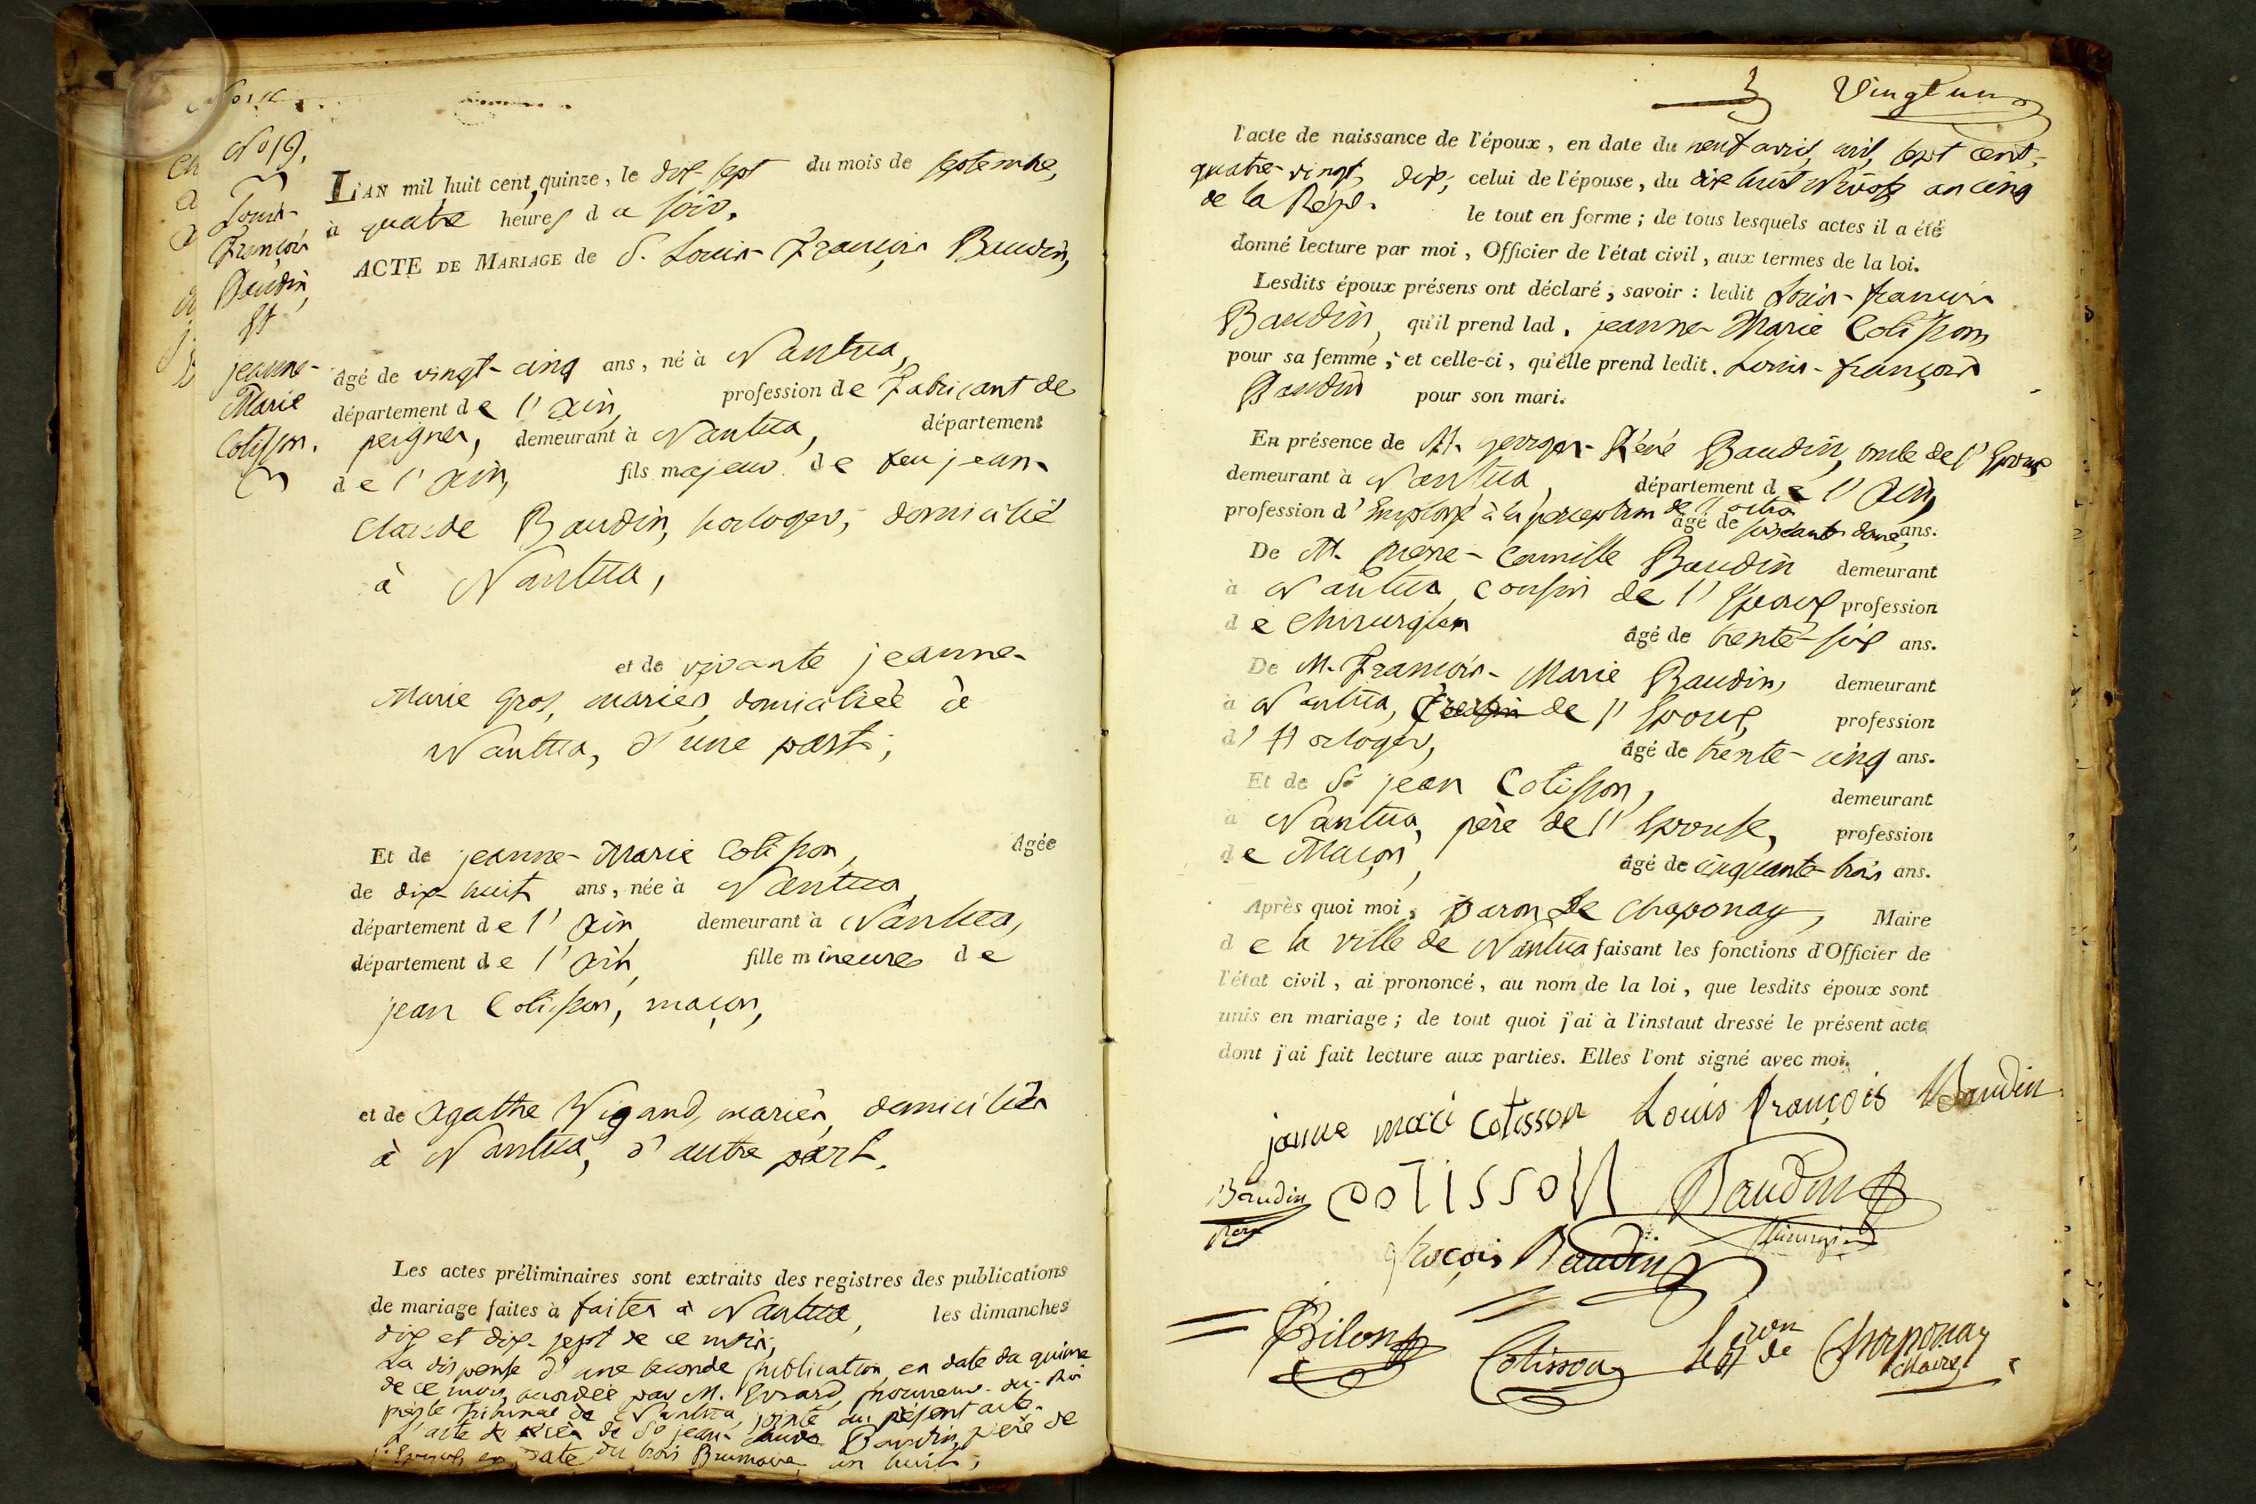 N° 19.
Louis-
François
Baudin,
Et
jeanne-
Marie
Cotisson.
L'AN mil huit cent quinze, le dix sept du mois de septembre,
à quatre heures du soir.
ACTE DE MARIAGE de S. Louis-François Baudin,
âgé de vingt-cinq ans, né à Nantua,
département de l'ain, profession de Fabricant de
peignes, demeurant à Nantua, département
de l'ain, fils majeur de feu jean-
Claude Baudin, horloger, domicilié
à Nantua,
et de vivante jeanne-
Marie Gros, mariés, domiciliée à
Nantua, d'une part;
Et de jeanne-Marie Cotisson, âgée
de dix-huit ans, née à Nantua,
département de l'ain, demeurant à Nantua,
département de l'ain, fille mineure de
jean Cotisson, maçon,
et de agathe Vigand, mariés, domiciliés
à Nantua, d'autre part.
Les actes préliminaires sont extraits des registres des publications
de mariage faites à faites à Nantua, les dimanches
dix et dix-sept de ce mois;
La dispense d'une seconde publication, en date du quinze
de ce mois, accordée par M. Evrard, procureur-du-Roi
près le Tribunal de Nantua, jointe au présent acte.
L'acte de décès de Sr jean-Claude Baudin, père de
l'Epoux, en date du trois Brumaire an huit;
Vingt un
l'acte de naissance de l'époux, en date du neuf avril, mil, sept cent-
quatre-vingt, dix; celui de l'épouse, du dix huit Nivose an cinq
de la Rép. le tout en forme; de tous lesquels actes il a été
donné lecture par moi, Officier de l'état civil, aux termes de la loi.
Lesdits époux présens ont déclaré, savoir : ledit Louis-françois
Baudin, qu'il prend lad. jeanne-Marie Cotisson
pour sa femme; et celle-ci, qu'elle prend ledit. Louis-françois
Baudin pour son mari.
En présence de M. georges-Réné Baudin, oncle de l'Epoux
demeurant à Nantua, département de l'Ain,
profession d'Employé à la perception de l'octroi âgé de soixante-douze ans.
De M. pierre-Camille Baudin demeurant
à Nantua, cousin de l'Epoux profession
de Chirurgien âgé de trente-six ans.
De M. François-Marie Baudin, demeurant
à Nantua, de l'Epoux, profession
d'Horloger, âgé de trente-cinq ans.
Et de Sr jean Cotisson, demeurant
à Nantua, père de l'Epouse, profession
de Maçon, âgé de cinquante-trois ans.
Après quoi moi, Baron de Chaponay, Maire
de la ville de Nantua faisant les fonctions d'Officier de
l'état civil, ai prononcé, au nom de la loi, que lesdits époux sont
unis en mariage; de tout quoi j'ai à l'instaut dressé le présent acte
dont j'ai fait lecture aux parties. Elles l'ont signé avec moi.
janne mari cotisson Louis François Baudin
Baudin COTISSON Baudin
Chirurgien
Baudin
Bilon Cotisson Le Bon de Chaponay
Maire